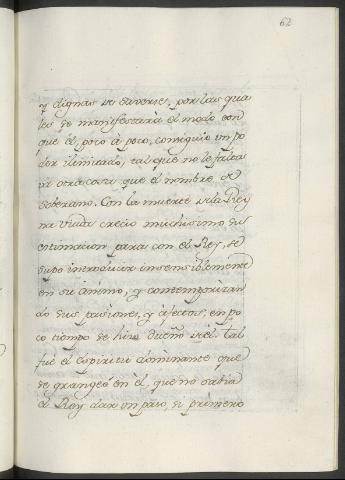 62
y dignas de saverse, por las qua
les se manifestarà el modo con
que èl, poco à poco, consiguio un po
der ilimitado, tal que no le falta
va otra cosa que el nombre de
soberano. Con la muerte dela Rey
na viuda crecio muchisimo su
estimacion para con el Rey, se
supo introducir insensiblemente
en su animo, y contemporizan
do sus pasiones, y afectos, en po
co tiempo se hizo dueño dèl. Tal
fuè el espiritu dominante que
se grangeò en èl, que no sabia
el Rey dar un paso, si primero